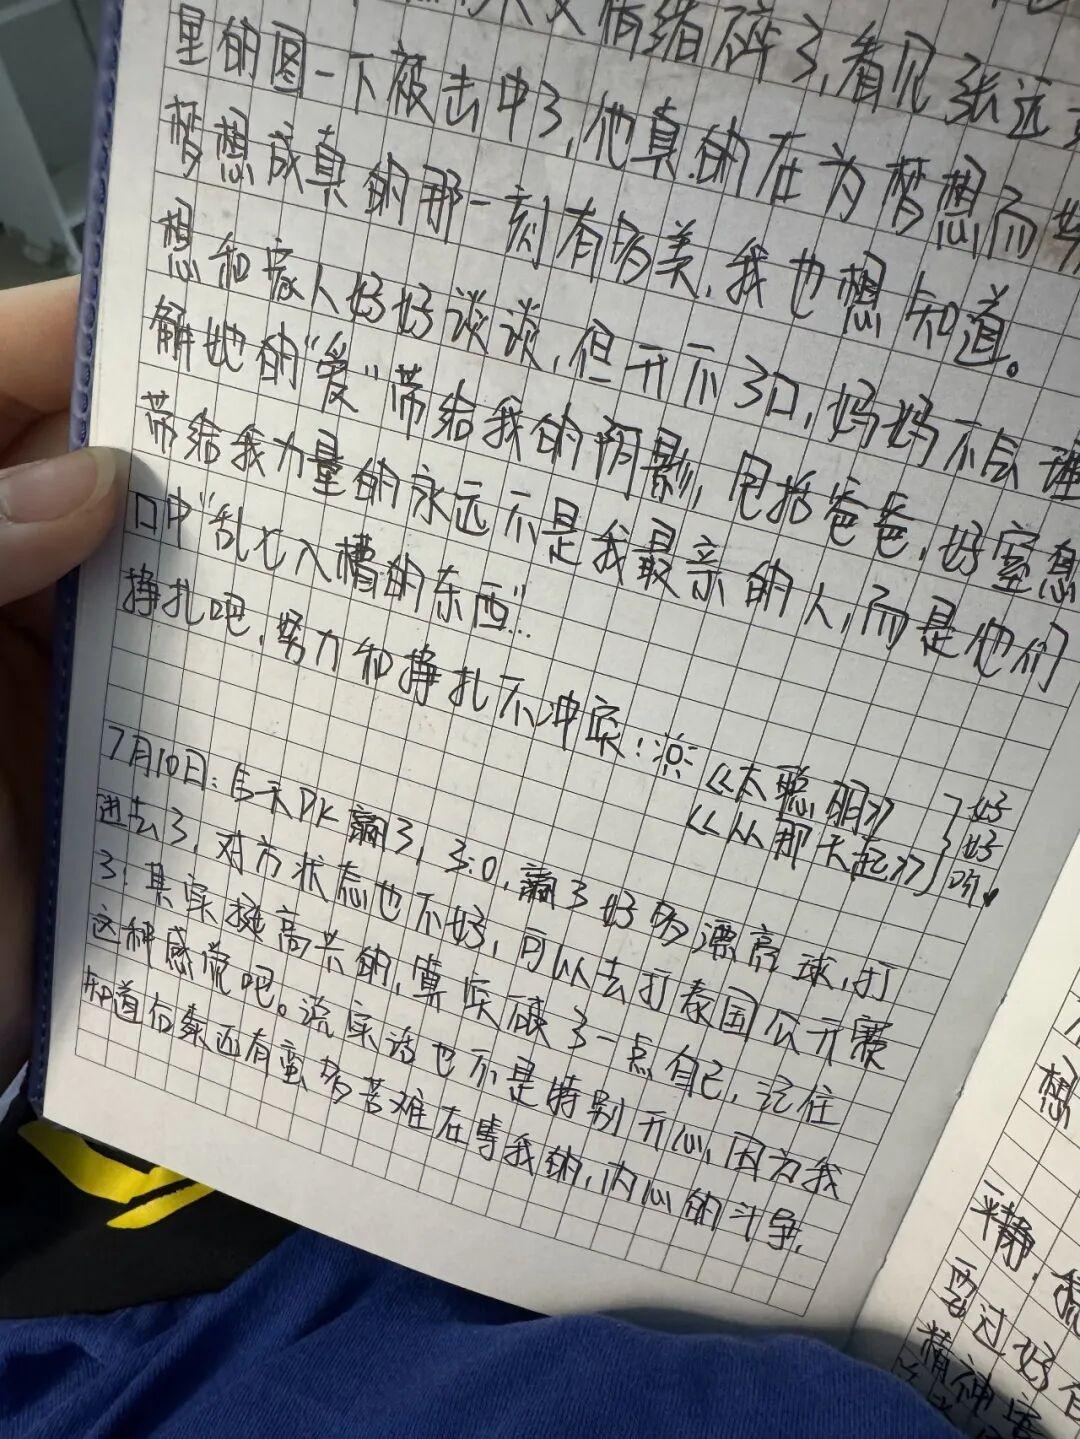 情绪碎了,看见张远
里的图一下被击中了,他真的在为梦想而
梦想成真的那一刻有多美,我也想知道。
想和家人好好谈谈,但开不了口,妈妈不会理
解她的“爱”带给我的阴影,包括爸爸,好窒息
带给我力量的永远不是我最亲的人,而是他们
口中“乱七八糟的东西”...
挣扎吧,努力和挣扎不冲突!
《太聪明》
《从那天起》
好好听
7月10日: PK赢了,3:0,赢了好多漂亮球,打
进去了,对方状态也不好,可以去打泰国公开赛
了,其实挺高兴的,算突破了一点自己,记住
这种感觉吧。说实话也不是特别开心,因为我
知道在泰还有蛮多苦难在等我的,内心的斗争,
想
平静,
要过好
精神